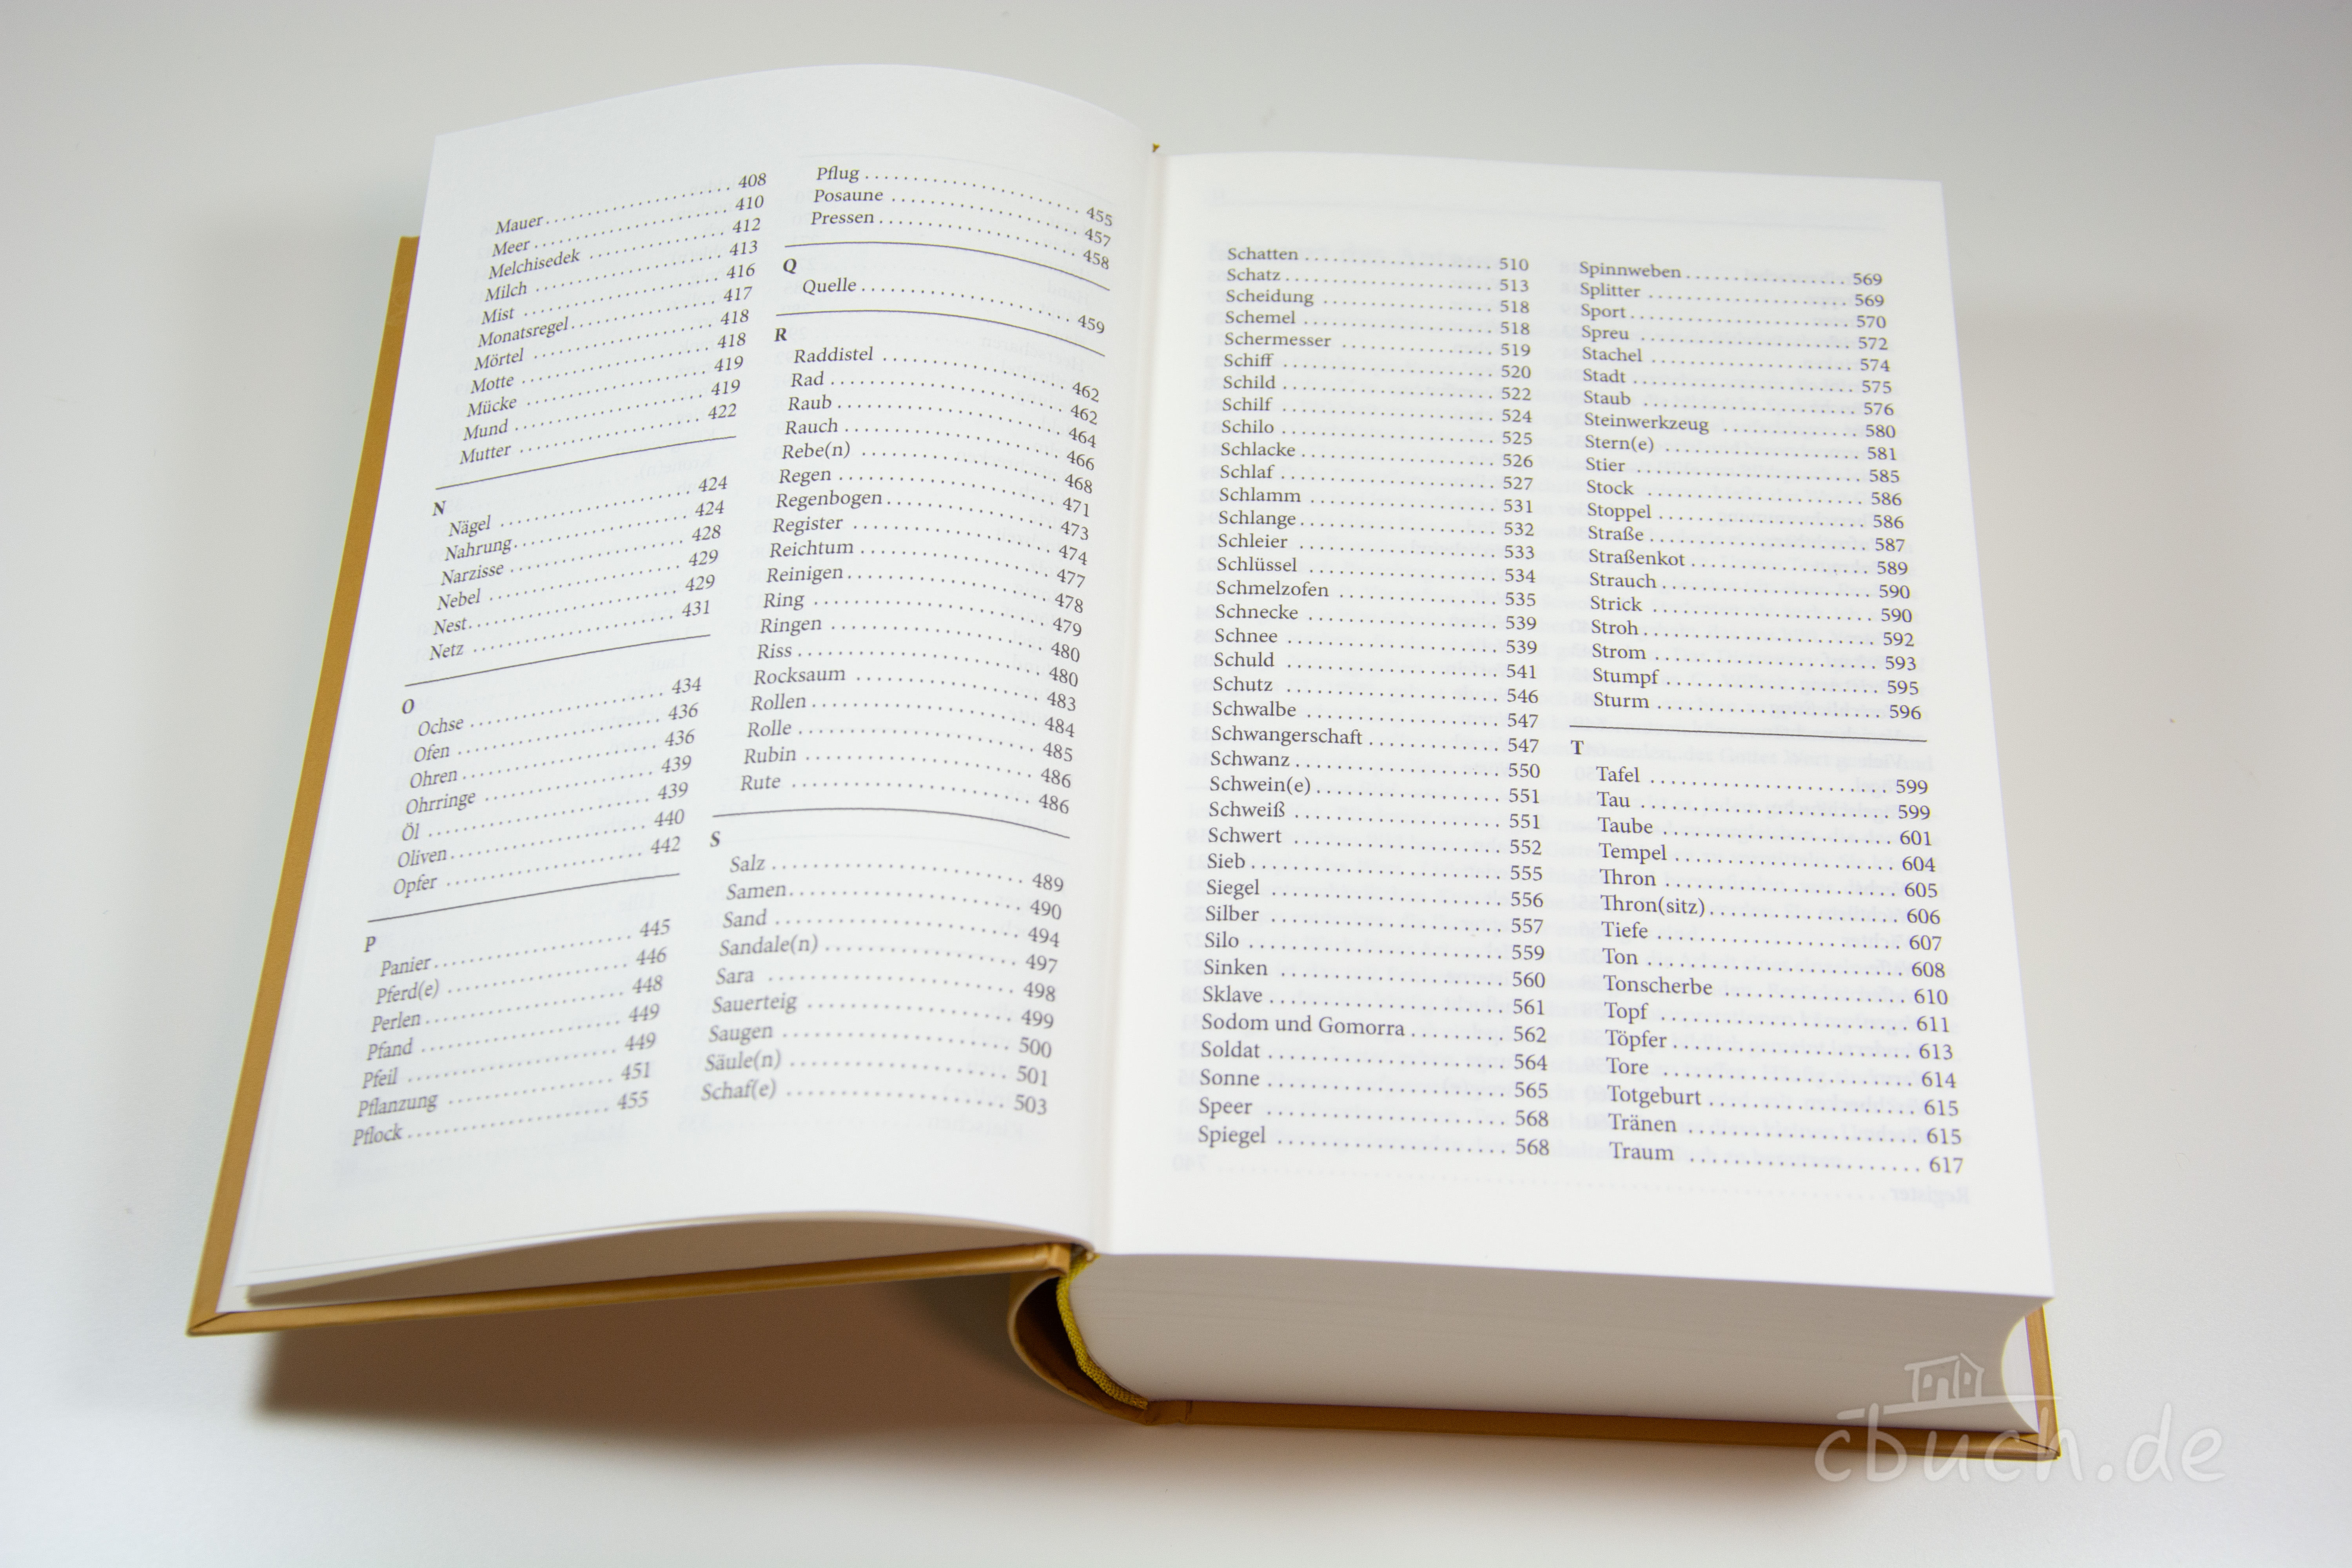 Mauer 408
Meer 410
Melchisedek 412
Milch 413
Mist 416
Monatsregel 417
Mörtel 418
Motte 418
Mücke 419
Mund 419
Mutter 422
N
Nägel 424
Nahrung 424
Narzisse 428
Nebel 429
Nest 429
Netz 431
O
Ochse 434
Ofen 436
Ohren 436
Ohrringe 439
Öl 439
Oliven 440
Opfer 442
P
Panier 445
Pferd(e) 446
Perlen 448
Pfand 449
Pfeil 449
Pflanzung 451
Pflock 455
Pflug 455
Posaune 457
Pressen 458
Q
Quelle 459
R
Raddistel 462
Rad 462
Raub 464
Rauch 466
Rebe(n) 468
Regen 471
Regenbogen 473
Register 474
Reichtum 477
Reinigen 478
Ring 479
Ringen 480
Riss 480
Rocksaum 483
Rollen 484
Rolle 485
Rubin 486
Rute 486
S
Salz 489
Samen 490
Sand 494
Sandale(n) 497
Sara 498
Sauerteig 499
Saugen 500
Säule(n) 501
Schaf(e) 503
Schatten 510
Schatz 513
Scheidung 518
Schemel 518
Schermesser 519
Schiff 520
Schild 522
Schilf 524
Schilo 525
Schlacke 526
Schlaf 527
Schlamm 531
Schlange 532
Schleier 533
Schlüssel 534
Schmelzofen 535
Schnecke 539
Schnee 539
Schuld 541
Schutz 546
Schwalbe 547
Schwangerschaft 547
Schwanz 550
Schwein(e) 551
Schweiß 551
Schwert 552
Sieb 555
Siegel 556
Silber 557
Silo 559
Sinken 560
Sklave 561
Sodom und Gomorra 562
Soldat 564
Sonne 565
Speer 568
Spiegel 568
Spinnweben 569
Splitter 569
Sport 570
Spreu 572
Stachel 574
Stadt 575
Staub 576
Steinwerkzeug 580
Stern(e) 581
Stier 585
Stock 586
Stoppel 586
Straße 587
Straßenkot 589
Strauch 590
Strick 590
Stroh 592
Strom 593
Stumpf 595
Sturm 596
T
Tafel 599
Tau 599
Taube 601
Tempel 604
Thron 605
Thron(sitz) 606
Tiefe 607
Ton 608
Tonscherbe 610
Topf 611
Töpfer 613
Tore 614
Totgeburt 615
Tränen 615
Traum 617
cbuch.de